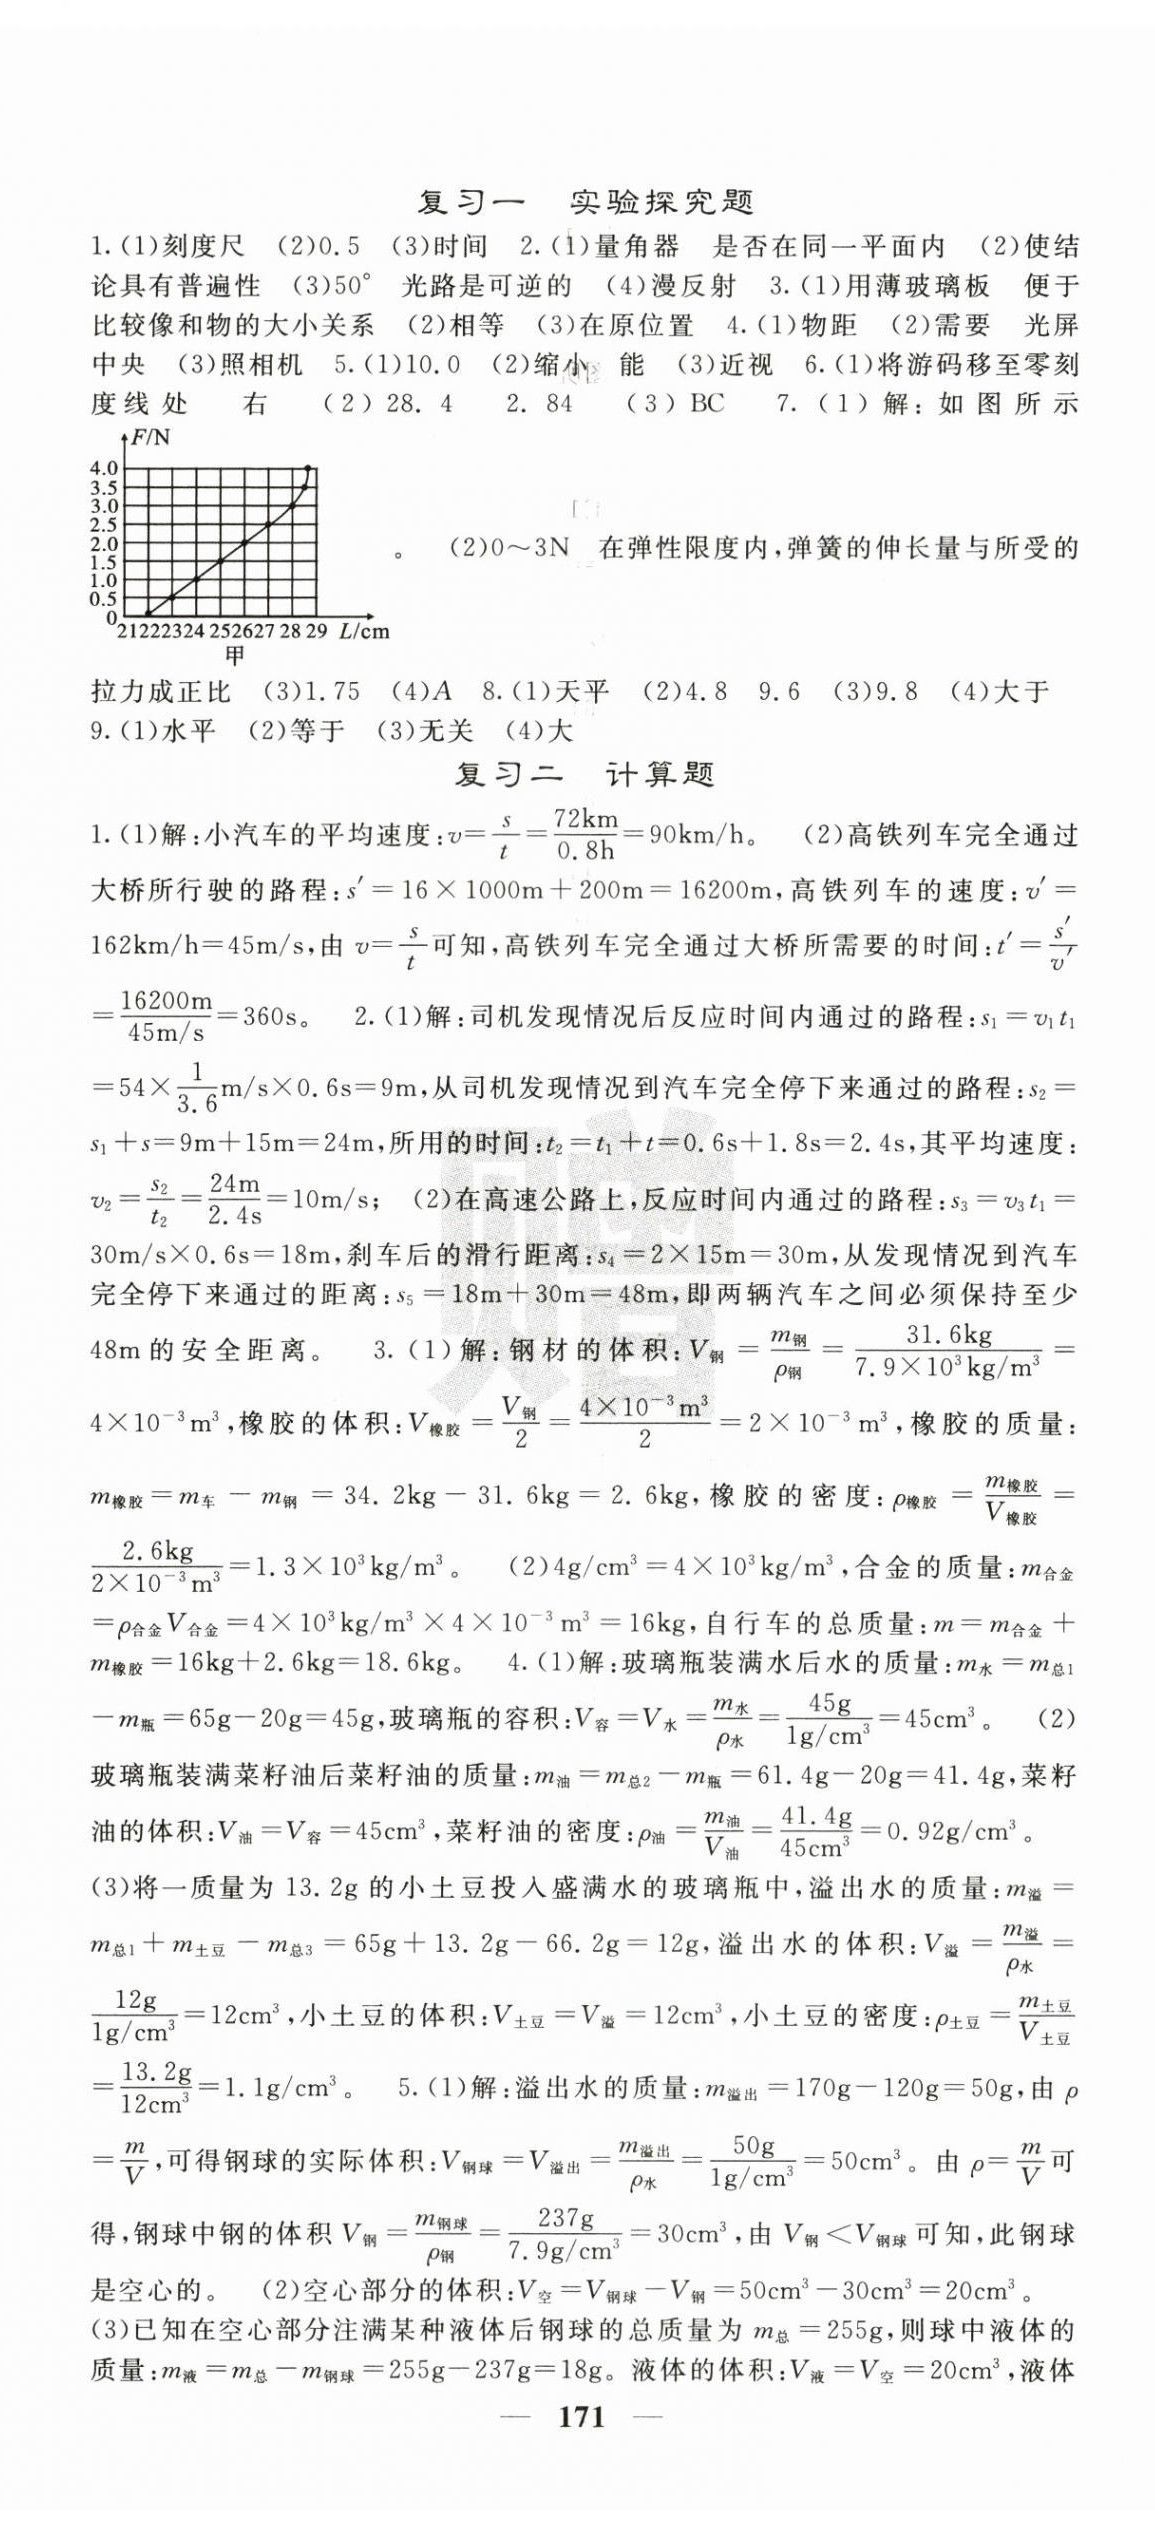 复习一 实验探究题
1.(1)刻度尺 (2)0.5 (3)时间 2.(1)量角器 是否在同一平面内 (2)使结
论具有普遍性 (3)50° 光路是可逆的 (4)漫反射 3.(1)用薄玻璃板 便于
比较像和物的大小关系 (2)相等 (3)在原位置 4.(1)物距 (2)需要 光屏
中央 (3)照相机 5.(1)10.0 (2)缩小 能 (3)近视 6.(1)将游码移至零刻
度线处 右 (2)28.4 2.84 (3)BC 7.(1)解:如图所示
F/N
4.0
3.5
3.0
2.5
2.0
1.5
1.0
0.5
0
21222324 252627 28 29 L/cm
甲
。 (2)0～3N 在弹性限度内,弹簧的伸长量与所受的
拉力成正比 (3)1.75 (4)A 8.(1)天平 (2)4.8 9.6 (3)9.8 (4)大于
9.(1)水平 (2)等于 (3)无关 (4)大
复习二 计算题
1.(1)解:小汽车的平均速度:v=s/t=72km/0.8h=90km/h。 (2)高铁列车完全通过
大桥所行驶的路程:s′=16×1000m+200m=16200m,高铁列车的速度:v′=
162km/h=45m/s,由 v=s/t可知,高铁列车完全通过大桥所需要的时间:t′=s′/v′
=16200m/45m/s=360s。 2.(1)解:司机发现情况后反应时间内通过的路程:s₁=v₁t₁
=54×1/3.6m/s×0.6s=9m,从司机发现情况到汽车完全停下来通过的路程:s₂=
s₁+s=9m+15m=24m,所用的时间:t₂=t₁+t=0.6s+1.8s=2.4s,其平均速度:
v₂=s₂/t₂=24m/2.4s=10m/s; (2)在高速公路上,反应时间内通过的路程:s₃=v₃t₁=
30m/s×0.6s=18m,刹车后的滑行距离:s₄=2×15m=30m,从发现情况到汽车
完全停下来通过的距离:s₅=18m+30m=48m,即两辆汽车之间必须保持至少
48m的安全距离。 3.(1)解:钢材的体积:V钢=m钢/ρ钢=31.6kg/7.9×10³kg/m³=
4×10⁻³m³,橡胶的体积:V橡胶=V钢/2=4×10⁻³m³/2=2×10⁻³m³,橡胶的质量:
m橡胶=m车-m钢=34.2kg-31.6kg=2.6kg,橡胶的密度:ρ橡胶=m橡胶/V橡胶=
2.6kg/2×10⁻³m³=1.3×10³kg/m³。 (2)4g/cm³=4×10³kg/m³,合金的质量:m合金
=ρ合金V合金=4×10³kg/m³×4×10⁻³m³=16kg,自行车的总质量:m=m合金+
m橡胶=16kg+2.6kg=18.6kg。 4.(1)解:玻璃瓶装满水后水的质量:m水=m总1
-m瓶=65g-20g=45g,玻璃瓶的容积:V容=V水=m水/ρ水=45g/1g/cm³=45cm³。 (2)
玻璃瓶装满菜籽油后菜籽油的质量:m油=m总2-m瓶=61.4g-20g=41.4g,菜籽
油的体积:V油=V容=45cm³,菜籽油的密度:ρ油=m油/V油=41.4g/45cm³=0.92g/cm³。
(3)将一质量为13.2g的小土豆投入盛满水的玻璃瓶中,溢出水的质量:m溢=
m总1+m土豆-m总3=65g+13.2g-66.2g=12g,溢出水的体积:V溢=m溢/ρ水=
12g/1g/cm³=12cm³,小土豆的体积:V土豆=V溢=12cm³,小土豆的密度:ρ土豆=m土豆/V土豆
=13.2g/12cm³=1.1g/cm³。 5.(1)解:溢出水的质量:m溢出=170g-120g=50g,由ρ
=m/V,可得钢球的实际体积:V钢球=V溢出=m溢出/ρ水=50g/1g/cm³=50cm³。由ρ=m/V可
得,钢球中钢的体积V钢=m钢球/ρ钢=237g/7.9g/cm³=30cm³,由V钢<V钢球可知,此钢球
是空心的。 (2)空心部分的体积:V空=V钢球-V钢=50cm³-30cm³=20cm³。
(3)已知在空心部分注满某种液体后钢球的总质量为m总=255g,则球中液体的
质量:m液=m总-m钢球=255g-237g=18g。液体的体积:V液=V空=20cm³,液体
— 171 —
赠